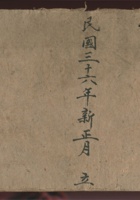 民國三十六年新正月 立